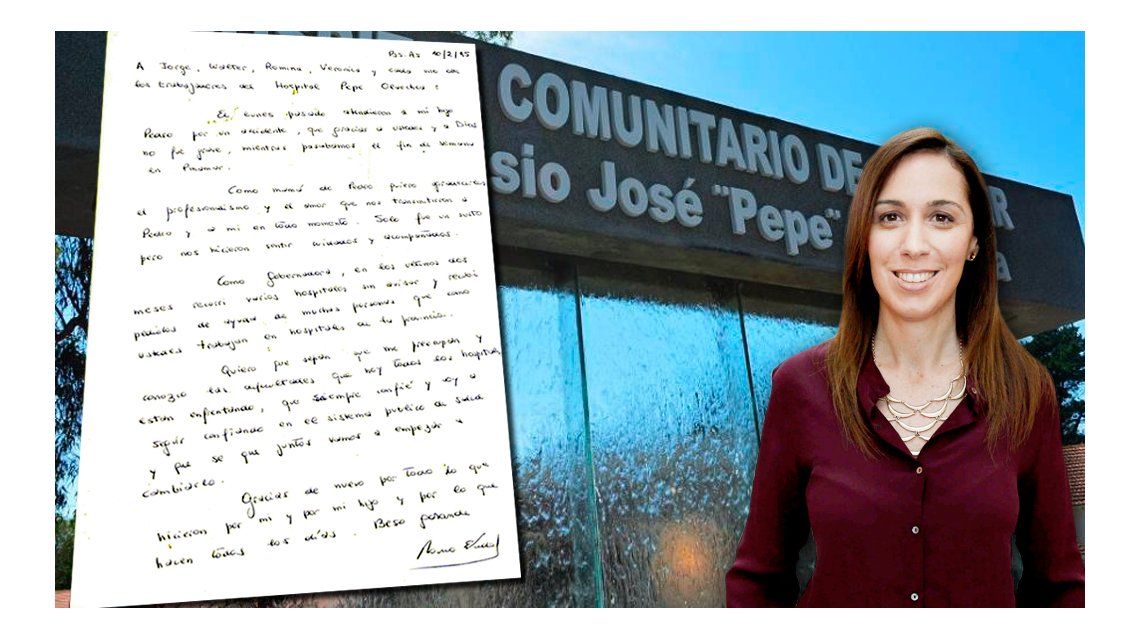 Bs. As 10/2/15
A Jorge, Walter, Romina, Veronica y cada uno de
los trabajadores del Hospital Pepe Olavarría :
El lunes pasado atendieron a mi hijo
Pedro por un accidente, que gracias a ustedes y a Dios
no fue grave, mientras pasabamos el fin de semana
en Pinamar.
Como mamá de Pedro quiero agradecerles
el profesionalismo y el amor que nos transmitieron a
Pedro y a mi en todo momento. Solo fue un susto
pero nos hicieron sentir cuidados y acompañados.
Como gobernadora, en los ultimos dos
meses recorri varios hospitales sin avisar y recibi
pedidos de ayuda de muchas personas que como
ustedes trabajan en hospitales de la provincia.
Quiero que sepan que me preocupan y
conozco las dificultades que hoy todos los hospitales
están enfrentando, que siempre confié y voy a
seguir confiando en el sistema publico de salud
y que se que juntos vamos a empezar a
cambiarlo.
Gracias de nuevo por todo lo que
hicieron por mi y por mi hijo y por lo que
hacen todos los días. Beso grande
COMUNITARIO DE
sio José "Pepe"